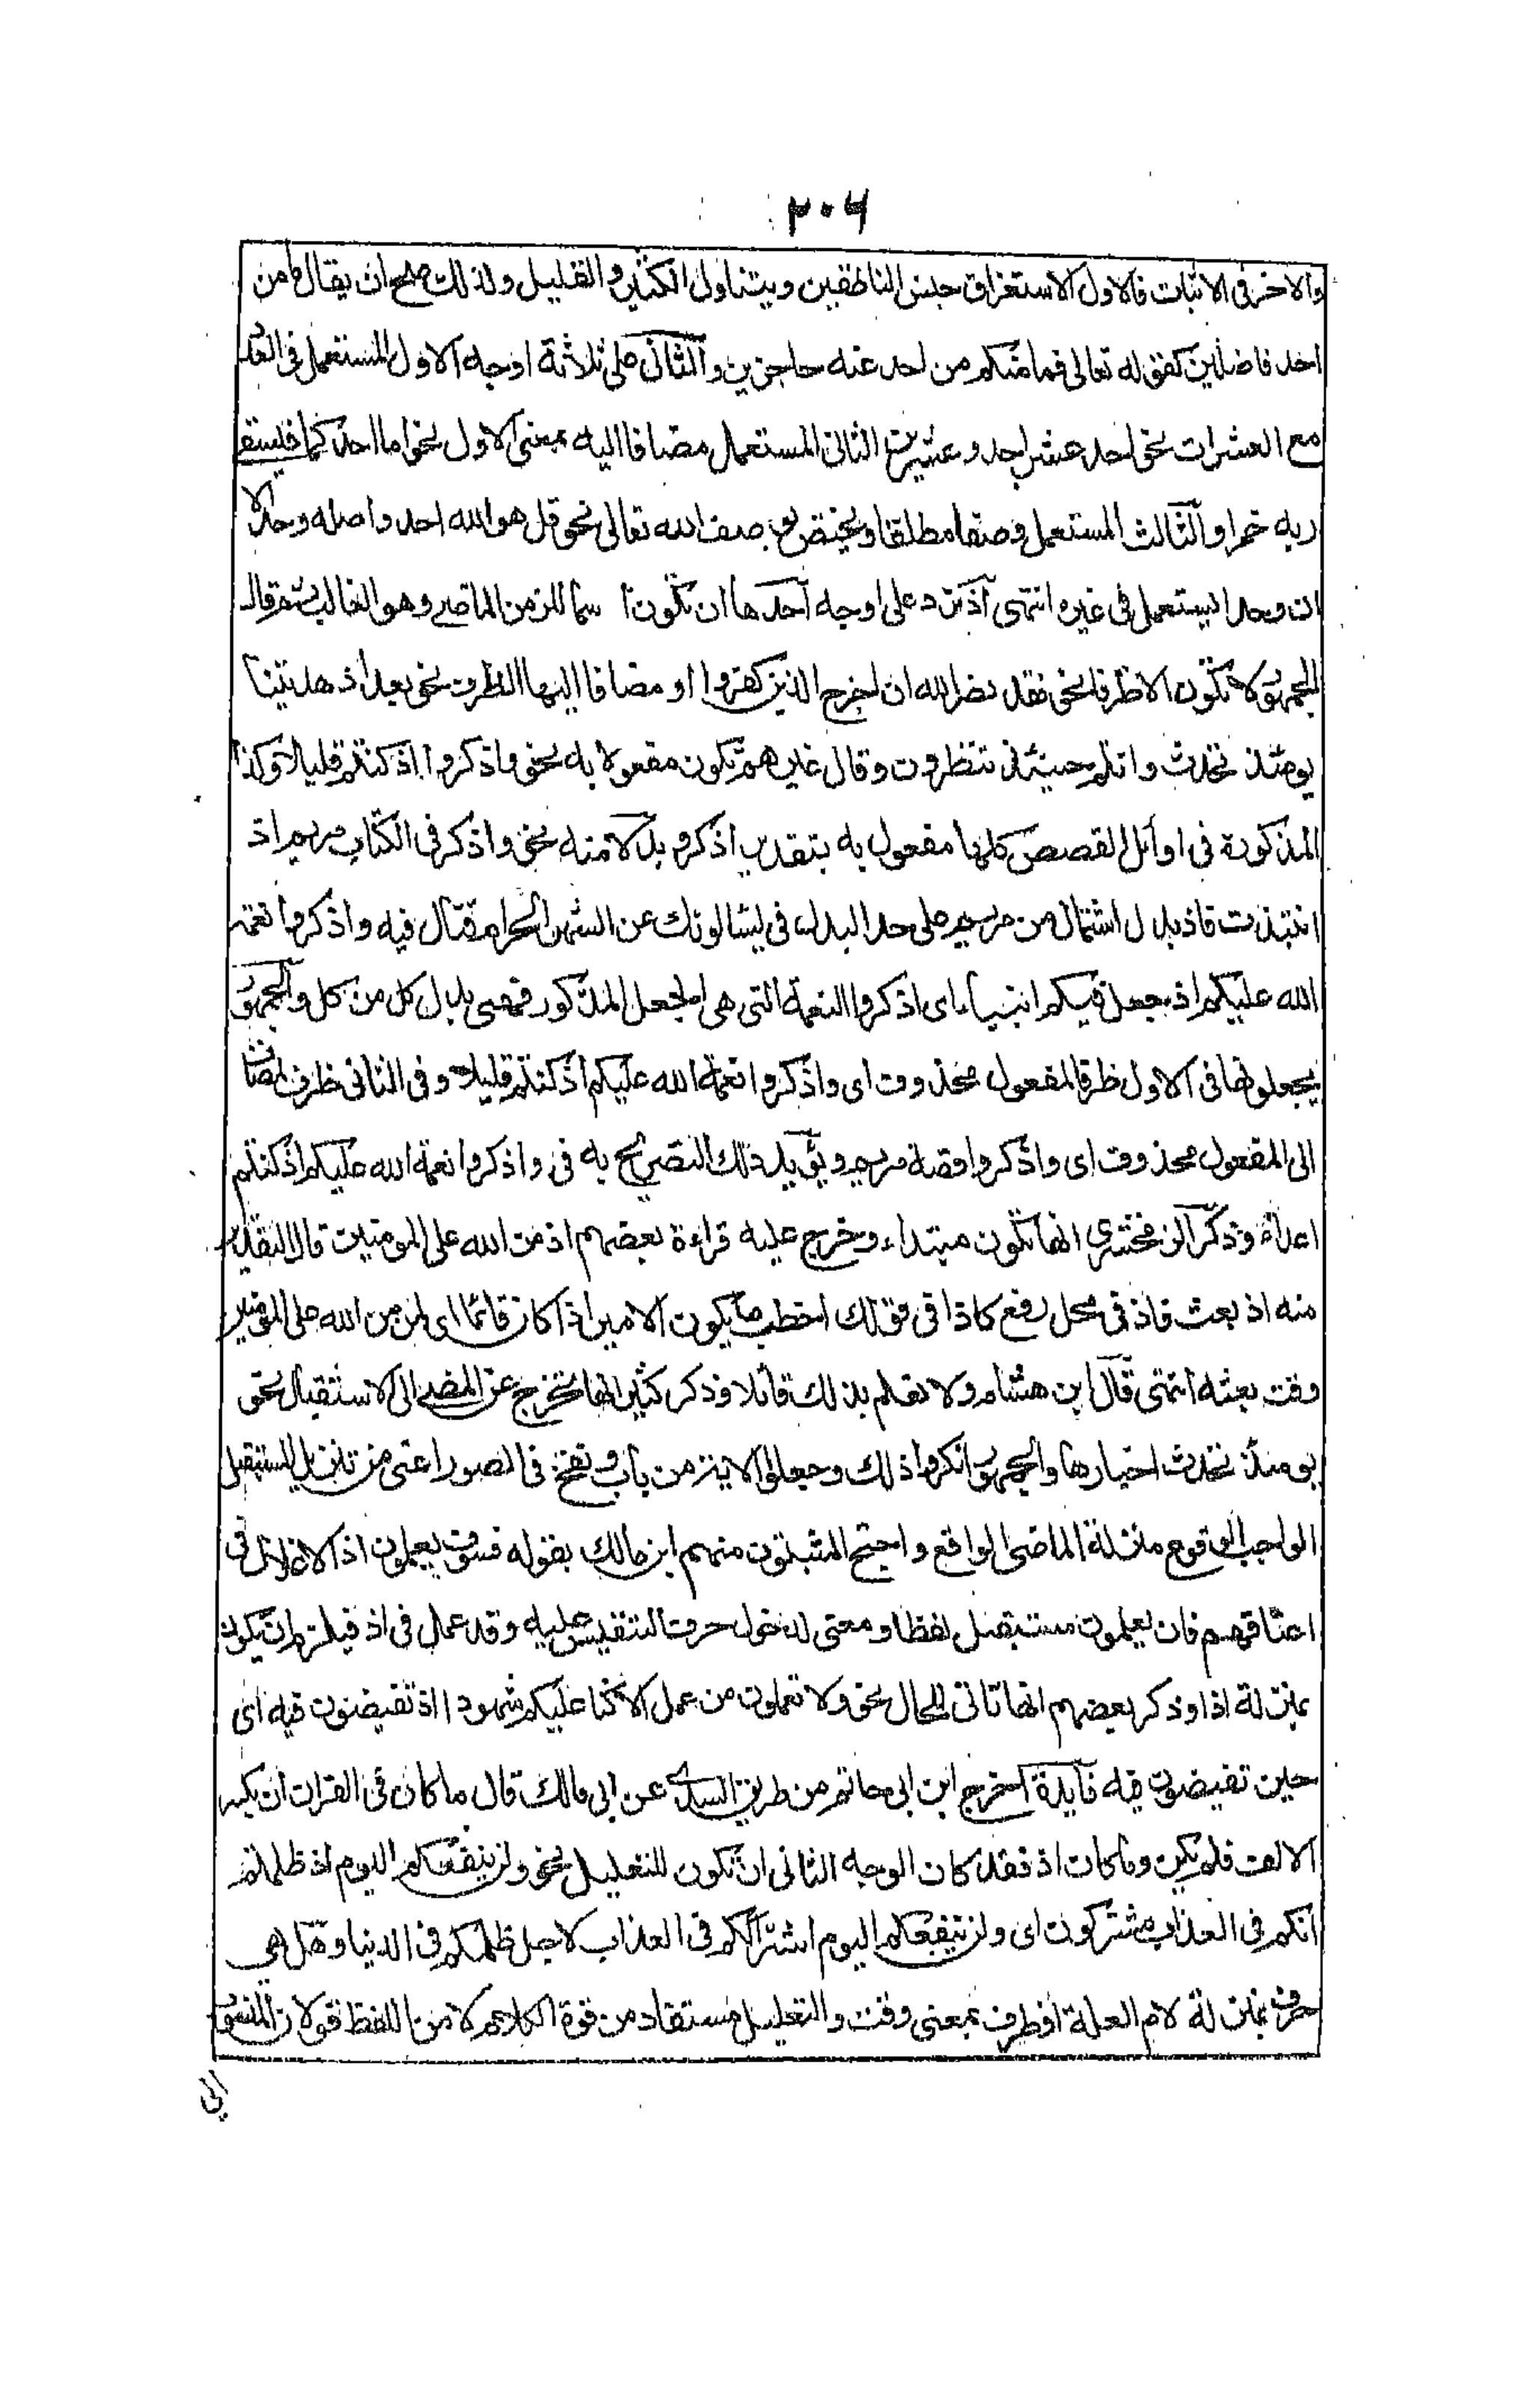 ٢٠٦
والاخر فى الاثبات فالاول لاستغراق جنس الناطقين ويتناول الكثير والقليل ولذلك صح ان يقال ما من
احد فاضلين كقوله تعالى فما منكم من احد عنه حاجزين والثانى على ثلاثة اوجه الاول المستعمل فى العدد
مع العشرات نحو احد عشر احد وعشرين الثانى المستعمل مضافا اليه بمعنى الاول نحو اما احدكما فيسقى
ربه خمرا والثالث المستعمل وصفا مطلقا ويختص بوصف الله تعالى نحو قل هو الله احد واصله وحد الا
ان وحدا يستعمل فى غيره انتهى اذ ترد على اوجه احدها ان تكون اسما للزمن الماضے وهو الغالب ثم قال
الجمهور لا تكون الا ظرفا نحو فقد نصره الله اذ اخرجه الذين كفروا او مضافا اليها الظرف نحو بعد اذ هديتنا
يومئذ تحدث وانتم حينئذ تنظرون وقال غيرهم تكون مفعولا به نحو واذكروا اذ كنتم قليلا وكذا
المذكورة فى اوائل القصص كلها مفعول به بتقدير اذكر وبدلا منه نحو واذكر فى الكتاب مريم اذ
انتبذت فاذ بدل اشتمال من مريم على حد البدل فى يسالونك عن الشهر الحرام قتال فيه واذكروا نعمة
الله عليكم اذ جعل فيكم انبياء اى اذكروا النعمة التى هى الجعل المذكور فهى بدل كل من كل والجمهور
يجعلونها فى الاول ظرفا لمفعول محذوف اى واذكروا نعمة الله عليكم اذ كنتم قليلا وفى الثانى ظرف لمضاف
الى المفعول محذوف اى واذكروا قصة مريم ويؤيد ذلك التصريح به فى واذكروا نعمة الله عليكم اذ كنتم
اعداء وذكر الزمخشرى انها تكون مبتداء وخرج عليه قراءة بعضهم اذ من الله على المومنين قال التقدير
منه اذ بعث فاذ فى محل رفع كاذا فى قولك اخطب ما يكون الامير اذا كان قائما اى لمن من الله على المومنين
وقت بعثه انتهى قال ابن هشام ولا نعلم بذلك قائلا وذكر كثير انها تخرج عن المضے الى الاستقبال نحو
يومئذ تحدث اخبارها والجمهور انكروا ذلك وجعلوا الاية من باب ونفخ فى الصور اعنى من تنزيل المستقبل
الواجب الوقوع منزلة الماضى الواقع واحتج المثبتون منهم ابن مالك بقوله فسوف يعلمون اذ الاغلال فى
اعناقهم فان يعلمون مستقبل لفظا ومعنى لدخول حرف التنفيس عليه وقد عمل فى اذ فيلزم ان يكون
بمنزلة اذا وذكر بعضهم انها تاتى للحال نحو ولا تعملون من عمل الا كنا عليكم شهودا اذ تفيضون فيه اى
حين تفيضون فيه فآيدة اخرج ابن ابى حاتم من طريق السدے عن ابى مالك قال ما كان فى القران ان بكسر
الالف فلم يكن وما كان اذ فقد كان الوجه الثانى ان تكون للتعليل نحو ولن ينفعكم اليوم اذ ظلمتم
انكم فى العذاب مشتركون اى ولن ينفعكم اليوم اشتراككم فى العذاب لاجل ظلمكم فى الدنيا وهل هى
حرف بمنزلة لام العلة او ظرف بمعنى وقت والتعليل مستفاد من قوة الكلام لا من اللفظ قولان المنسوب
الى